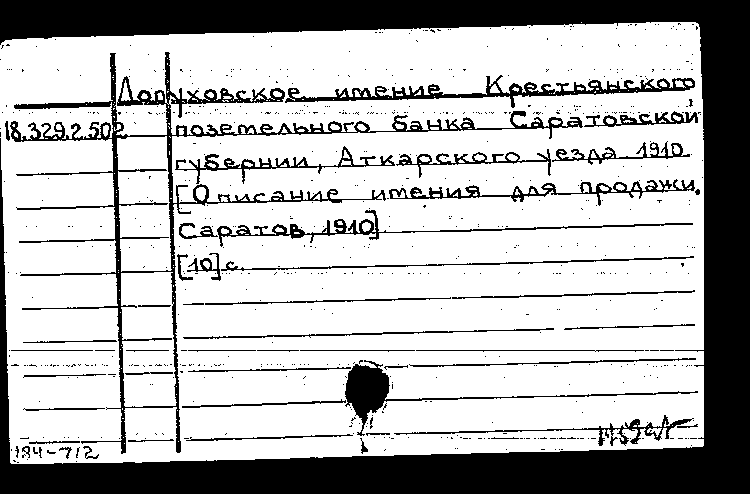 Лопуховское имение Крестьянского
18.329.2.502 поземельного банка Саратовской
губернии, Аткарского уезда 1910
[Описание имения для продажи.
Саратов, 1910]
[10] с.
184-712